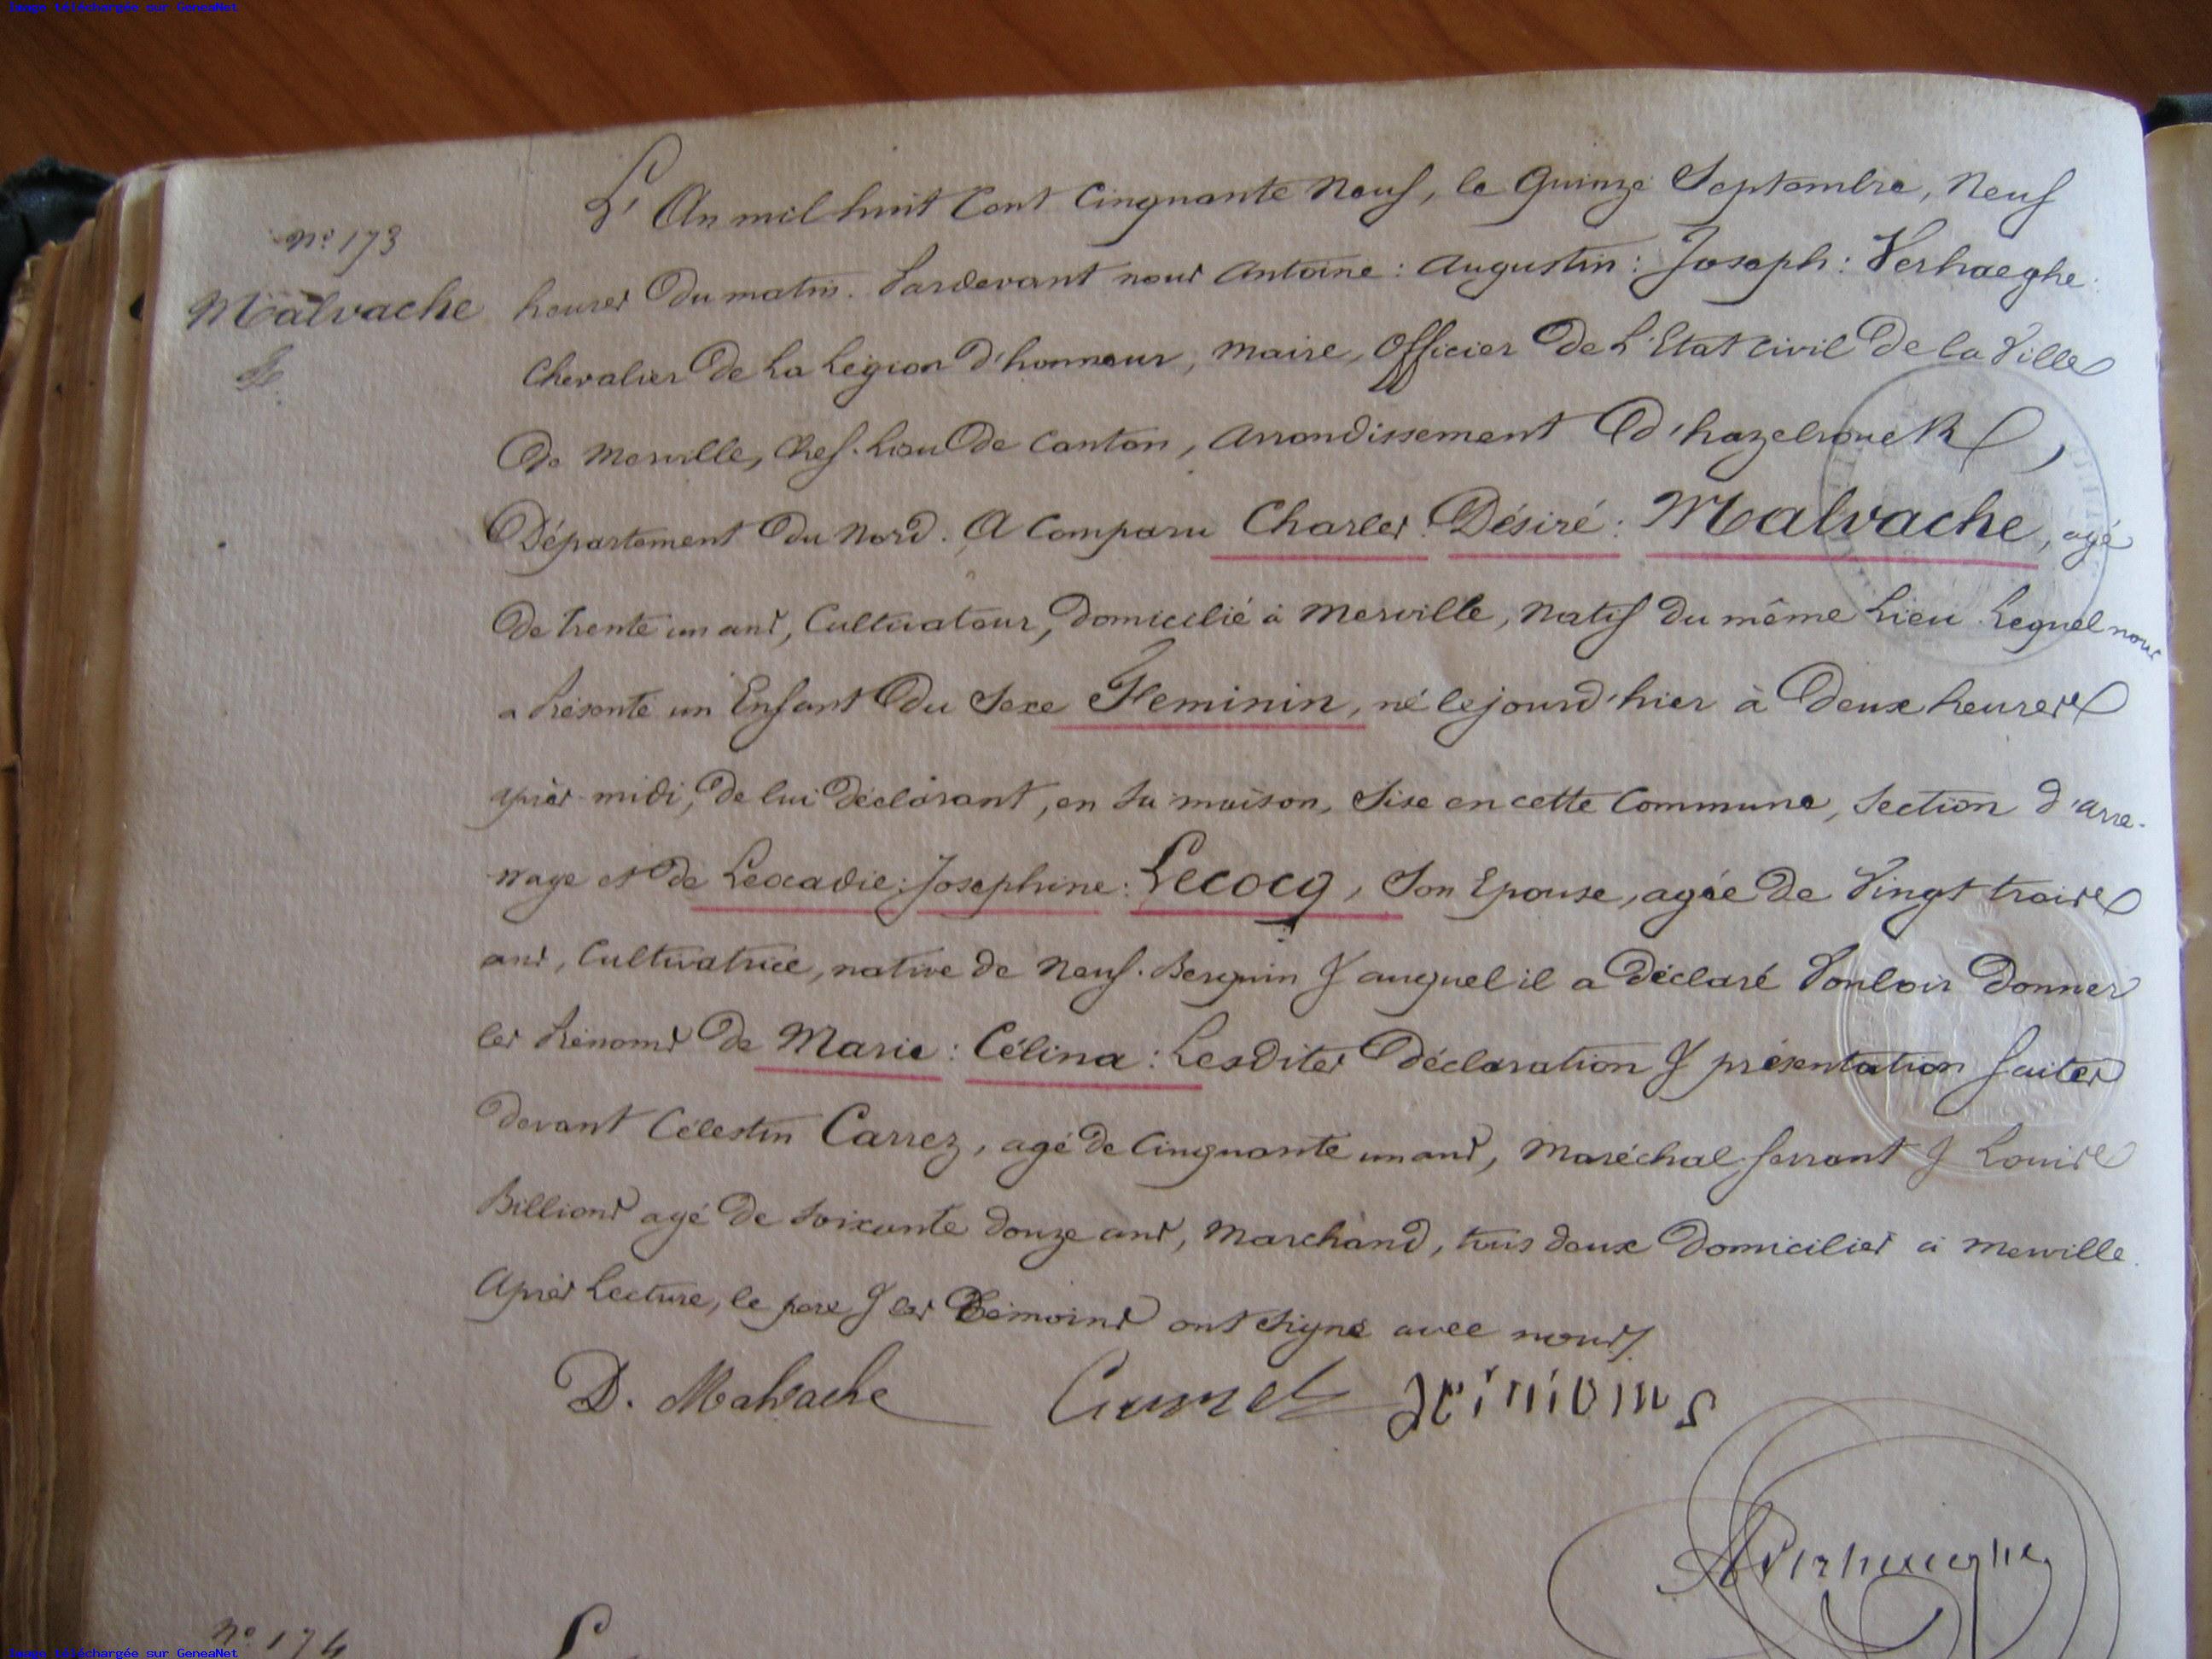 Image téléchargée sur GeneaNet
n° 173
Malvache
L'An mil huit Cent Cinquante Neuf, le Quinze Septembre, Neuf
heures Du matin. Pardevant nous Antoine : Augustin : Joseph : Verhaeghe
Chevalier De La Légion D'honneur, Maire, Officier De L'Etat civil De la Ville
De Merville, Chef-Lieu De Canton, Arrondissement D'hazebrouck,
Département Du Nord. A Comparu Charles : Désiré : Malvache, agé
De trente un ans, Cultivateur, Domicilié à Merville, Natif Du même Lieu Lequel nous
a Présenté un Enfant Du Sexe Feminin, né le jour d'hier à Deux heures
après-midi, De lui Déclarant, en Sa maison, Sise en cette Commune, Section d'arre-
wage et De Léocadie : Josephine : Lecocq, Son Epouse, agée De Vingt trois
ans, Cultivatrice, native De Neuf-Berquin & auquel il a Déclaré Vouloir Donner
les Prénoms De Marie : Célina : Lesdites Déclaration & présentation faites
Devant Célestin Carrez, agé De Cinquante un ans, Maréchal-ferrant & Louis
Billiond agé De Soixante Douze ans, Marchand, tous deux Domiciliés à Merville.
Après Lecture, le pere & les Témoins ont signé avec nous.
D. Malvache
AVerhaeghe
n° 174
L
Image téléchargée sur GeneaNet